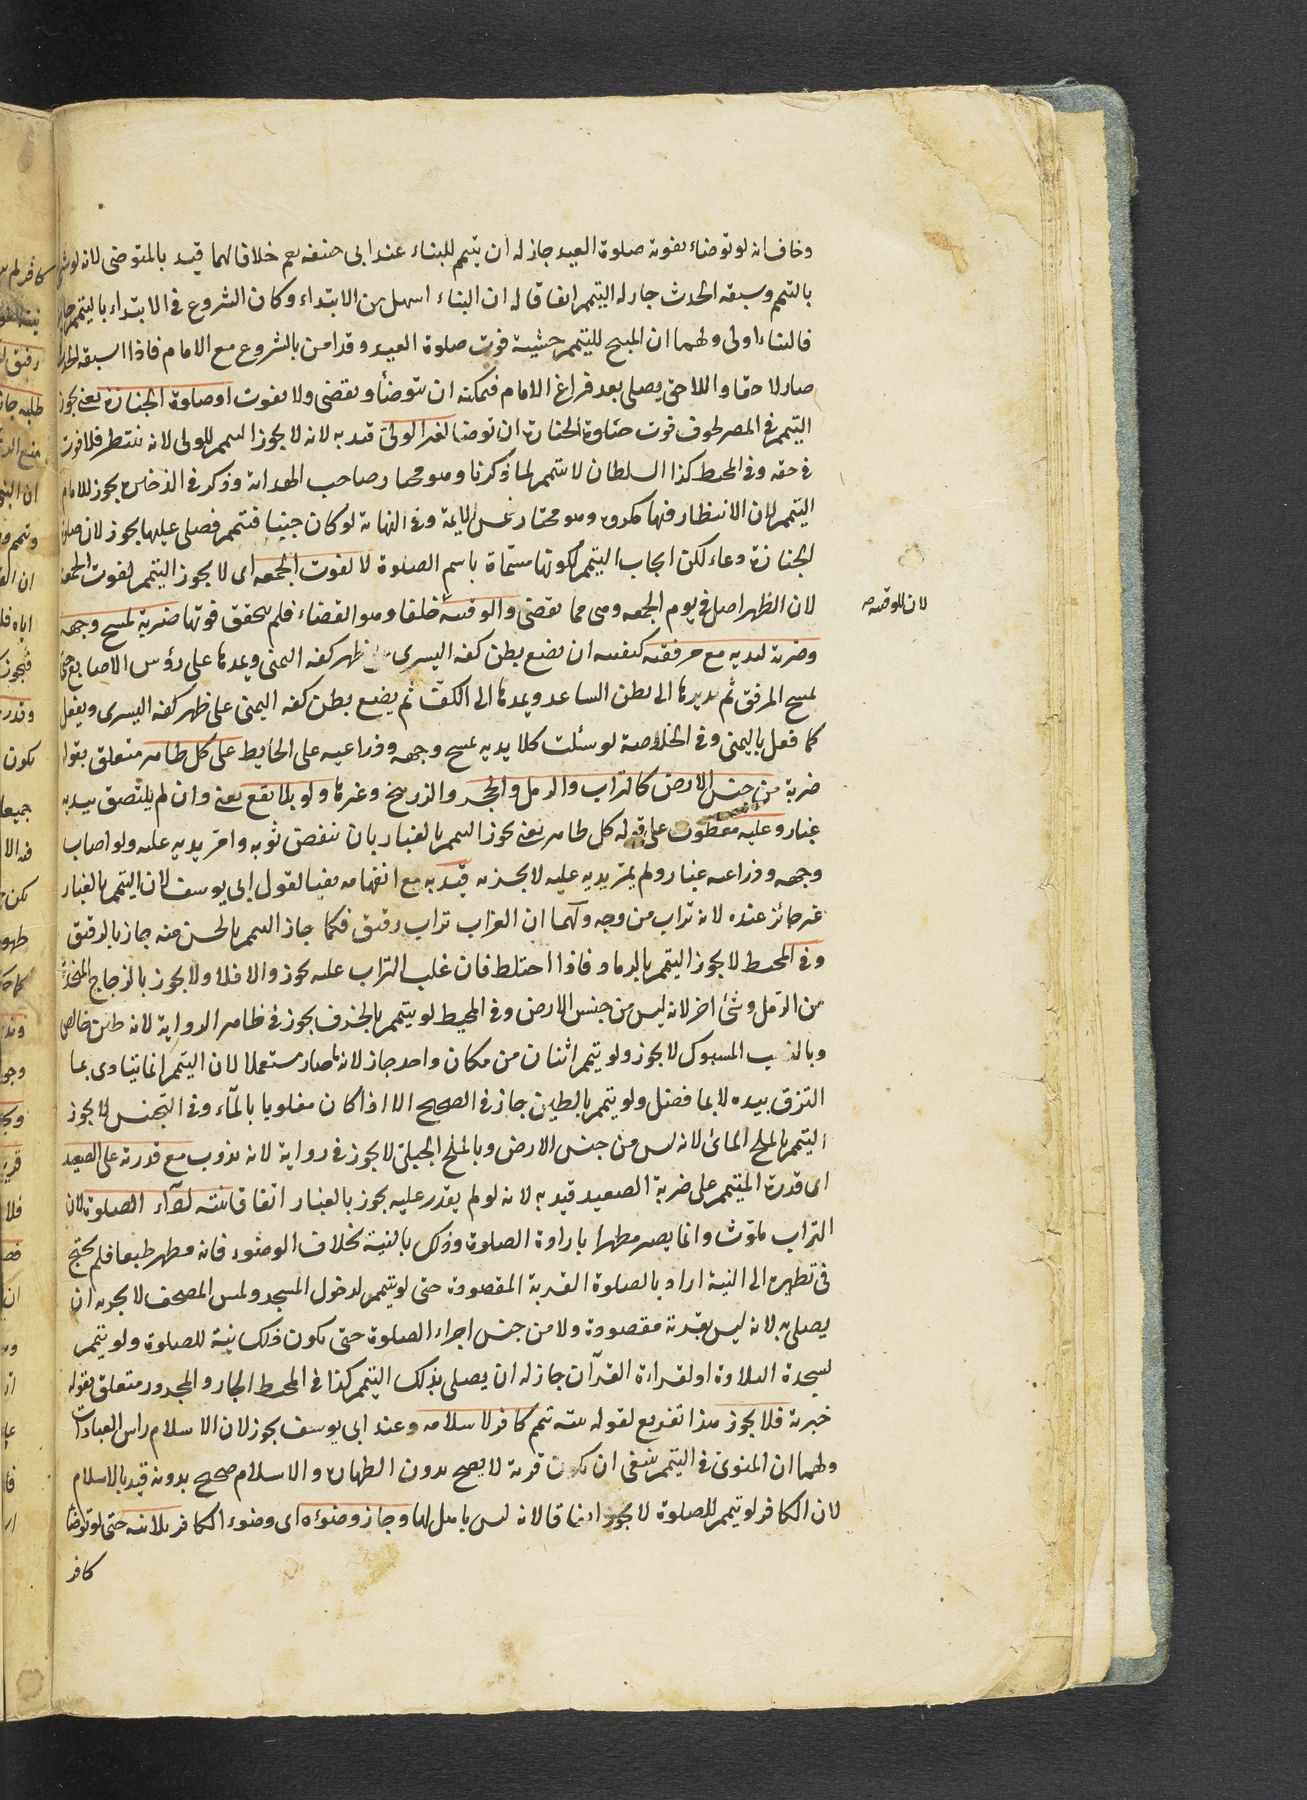 وخاف انه لو توضاء يفوته صلوة العيد جاز له ان يتيمم للبناء عند ابى حنيفه رحم خلافا لهما قيد بالمتوضى لانه لو شرع
بالتيمم وسبقه الحدث جاز له التيمم اتفاقا له ان البناء اسهل من الابتداء وكان الشروع فى الابتداء بالتيمم جائز
فالبناء اولى ولهما ان المبيح للتيمم خشية فوت صلوة العيد وقد امن بالشروع مع الامام فاذا سبقه الحدث
صار لاحقا واللاحق يصلى بعد فراغ الامام فيمكنه ان يتوضأ ويقضى ولا يفوت او صلوة الجنازة يعنى يجوز
التيمم فى المصر لخوف فوت صلوة الجنازة ان توضا لغير الولى قيد به لانه لا يجوز التيمم للولى لانه ينتظر فلا فوت
فى حقه وفى المحيط كذا السلطان لا يتيمم لما ذكرنا وهو مختار صاحب الهداية وذكر فى الذخيرة يجوز للامام
التيمم لان الانتظار فيها مكروه وهو مختار شمس الايمة وفى النهاية لو كان جنبا فتيمم فصلى عليها يجوز لان صلوة
الجنازة دعاء لكن ايجاب التيمم لكونها مسماة باسم الصلوة لا لفوت الجمعه اى لا يجوز التيمم لفوت الجمعة
لان الظهر اصل فى يوم الجمعه وهى مما يقضى والوقتيه خلفا وهو القضاء فلم يتحقق فوتها ضربة لمسح وجهه
لان للوقتيه ص
وضربة ليديه مع مرفقيه كيفيته ان يضع بطن كفه اليسرى على ظهر كفه اليمنى ويمدها على رؤس الاصابع حتى
يمسح المرفق ثم يديرها الى بطن الساعد ويمدها الى الكف ثم يضع بطن كفه اليمنى على ظهر كفه اليسرى ويفعل
كما فعل باليمنى وفى الخلاصة لو شلت كلا يديه يمسح وجهه وذراعيه على الحايط على كل طاهر متعلق بقوله
ضربة من جنس الارض كالتراب والرمل والحجر والزرنيخ وغيرها ولو بلا نقع يعنى وان لم يلتصق بيديه
غبار وعليه معطوف على قوله كل طاهر يعنى يجوز التيمم بالغبار بان نفض ثوبه وامر يديه عليه ولو اصاب
وجهه وذراعيه غبار ولم يمر يديه عليه لا يجزيه قيد به مع انفهامه نفيا لقول ابى يوسف لان التيمم بالغبار
غير جائز عنده لانه تراب من وجه ولهما ان الغراب تراب رقيق فكما جاز التيمم بالخشن منه جاز بالرقيق
وفى المحيط لا يجوز التيمم بالرماد فاذا اختلط فان غلب التراب عليه يجوز والا فلا ولا يجوز بالزجاج المتخذ
من الرمل وشئ اخر لانه ليس من جنس الارض وفى المحيط لو تيمم بالخزف يجوز فى ظاهر الرواية لانه طين خالص
وبالذهب المسبوك لا يجوز ولو تيمم اثنان من مكان واحد جاز لانه ما صار مستعملا لان التيمم انما يتأدى بما
التزق بيده لا بما فضل ولو تيمم بالطين جاز فى الصحيح الا اذا كان مغلوبا بالمآء وفى التجنيس لا يجوز
التيمم بالملح المائى لانه ليس من جنس الارض وبالملح الجبلى لا يجوز فى رواية لانه يذوب مع قدرته على الصعيد
اى قدرة المتيمم على ضربة الصعيد قيد به لانه لو لم يقدر عليه يجوز بالغبار اتفاقا بنية لاداء الصلوة لان
التراب ملوث وانما يصير مطهرا باراوة الصلوة وذلك بالنية بخلاف الوضوء فانه مطهر طبعا فلم يحتج
فى تطهيره الى النية اراد بالصلوة القربة المقصودة حتى لو تيمم لدخول المسجد ولمس المصحف لا يجزيه ان
يصلى به لانه ليس بقربة مقصودة ولا من جنس اجزاء الصلوة حتى يكون ذلك نية للصلوة ولو تيمم
لسجدة التلاوة او لقراءة القرآن جاز له ان يصلى بذلك التيمم كذا فى المحيط الجار والمجرور متعلق بقوله
ضربة فلا يجوز هذا تفريع لقوله بنية تيمم كافر لاسلامه وعند ابى يوسف يجوز لان الاسلام راس العبادات
ولهما ان المنوى فى التيمم ينبغى ان يكون قربة لا يصح بدون الطهارة والاسلام صحيح بدونه قيد بالاسلام
لان الكافر لو تيمم للصلوة لا يجوز اتفاقا لانه ليس باهل لها وجاز وضوءه اى وضوء الكافر بلا نية حتى لو توضا
كافر